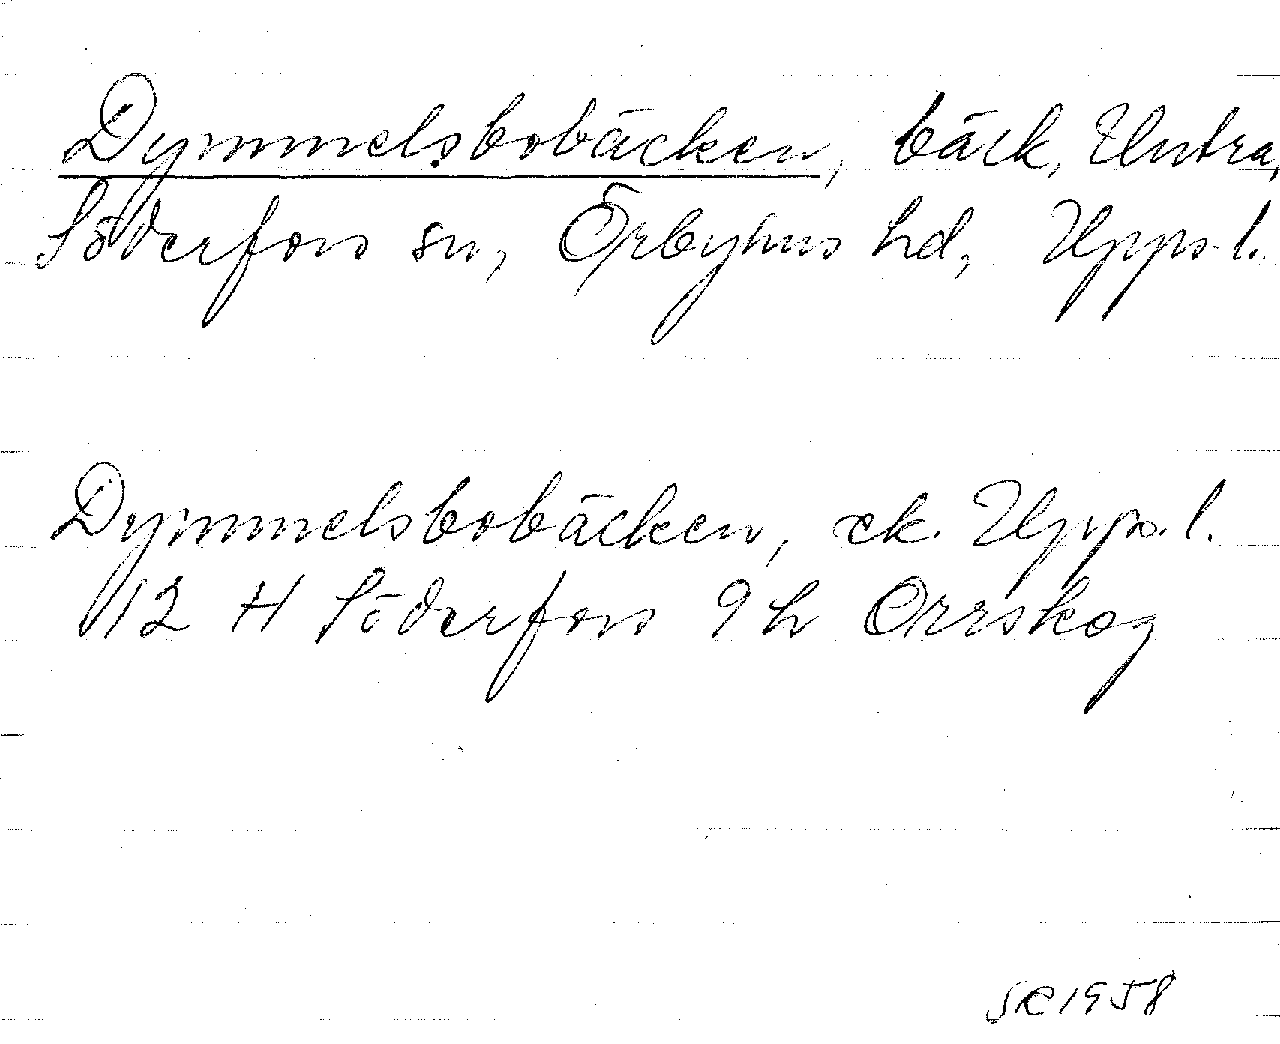 Dymmelsbobäcken, bäck, Untra,
Söderfors sn, Örbyhus hd, Upps. l.
Dymmelsbobäcken, ek. Upps. l.
12 H Söderfors 9 h Orrskog
SR 1958